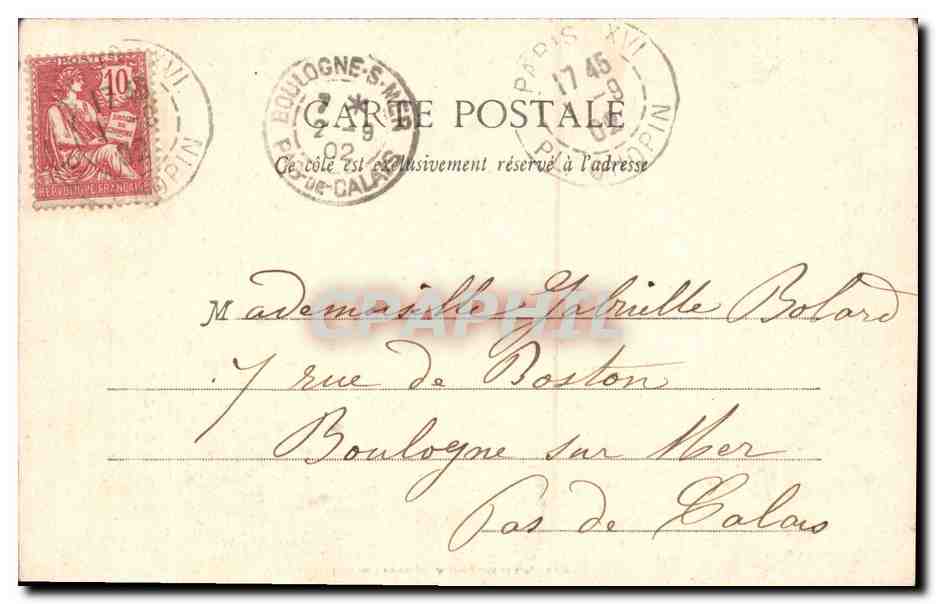 POSTES
10
DROITS DE L'HOMME
REPUBLIQUE FRANÇAISE
BOULOGNE-S-MER
7 *
2 -9
02
PAS-DE-CALAIS
PARIS XVI
17 45
1 -9
02
PL. CHOPIN
CARTE POSTALE
Ce côté est exclusivement réservé à l'adresse
CPAPHIL
Mademoiselle Gabrielle Bolard
7 rue de Boston
Boulogne sur Mer
Pas de Calais